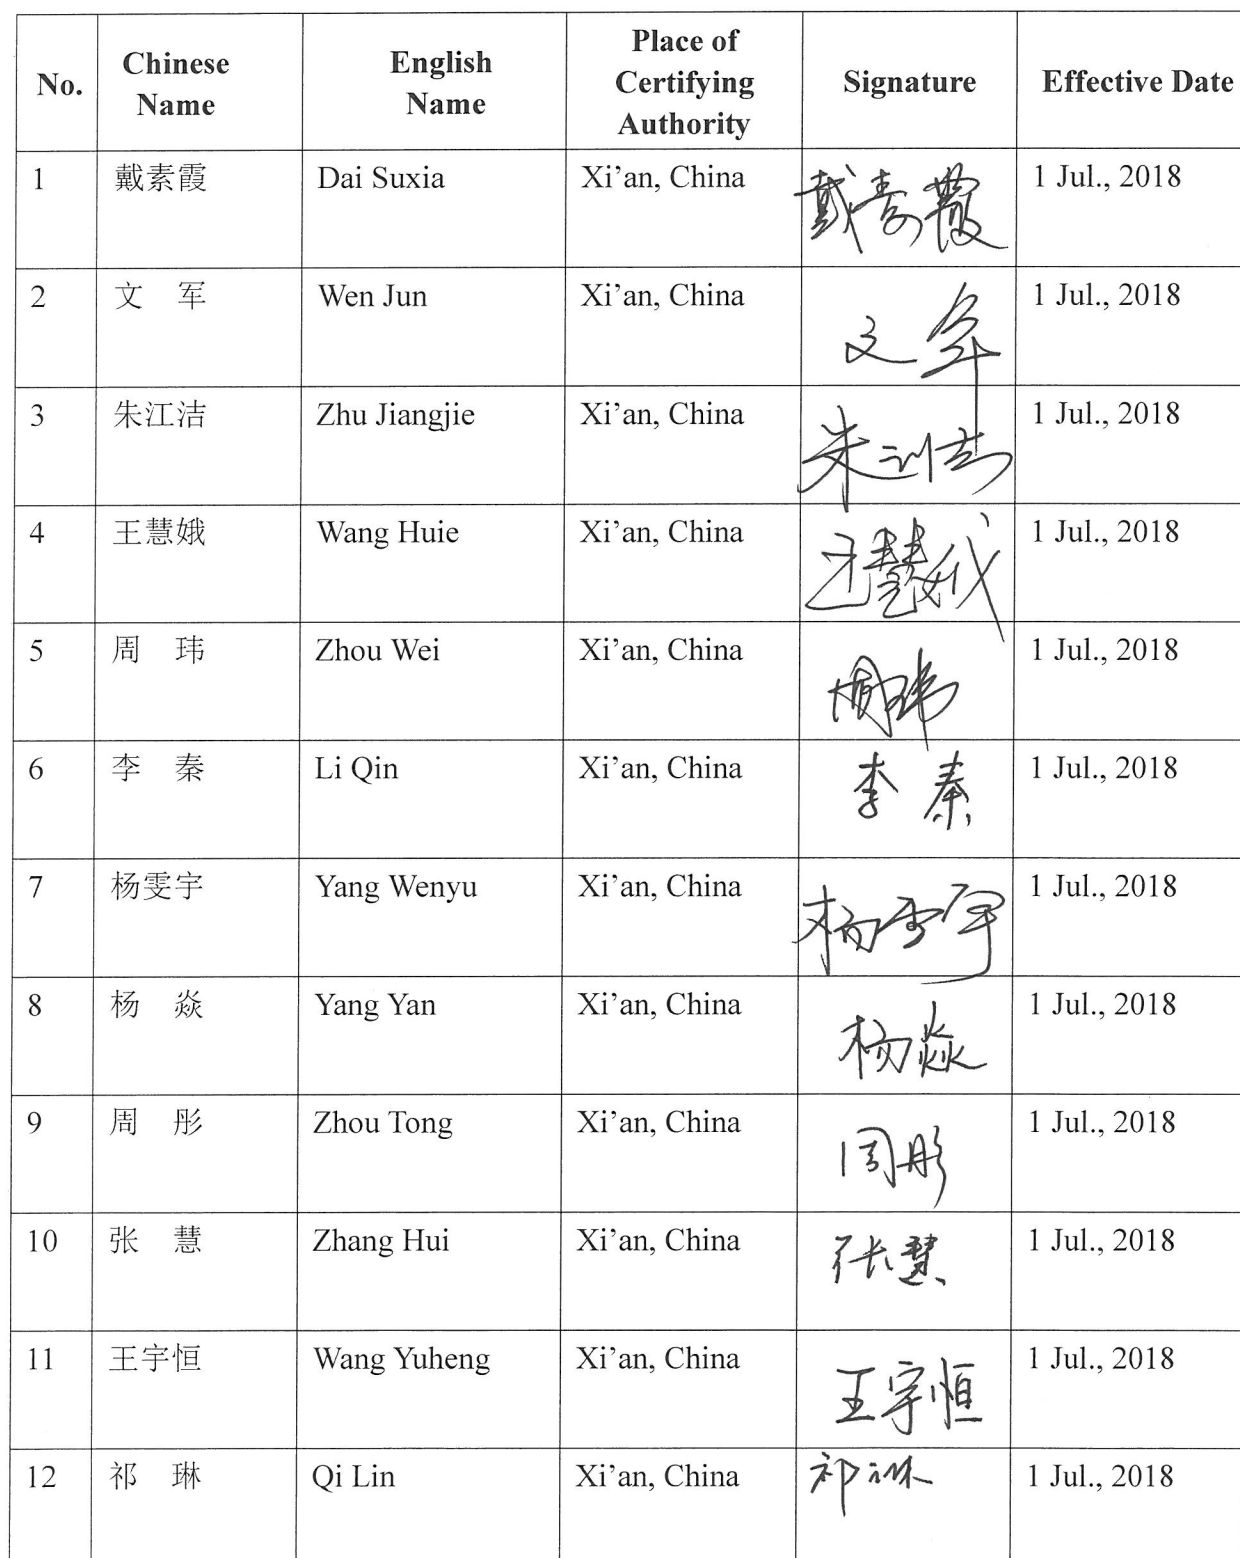 No. Chinese Name English Name Place of Certifying Authority Signature Effective Date
1 戴素霞 Dai Suxia Xi'an, China 戴素霞 1 Jul., 2018
2 文 军 Wen Jun Xi'an, China 文军 1 Jul., 2018
3 朱江洁 Zhu Jiangjie Xi'an, China 朱江洁 1 Jul., 2018
4 王慧娥 Wang Huie Xi'an, China 王慧娥 1 Jul., 2018
5 周 玮 Zhou Wei Xi'an, China 周玮 1 Jul., 2018
6 李 秦 Li Qin Xi'an, China 李秦 1 Jul., 2018
7 杨雯宇 Yang Wenyu Xi'an, China 杨雯宇 1 Jul., 2018
8 杨 焱 Yang Yan Xi'an, China 杨焱 1 Jul., 2018
9 周 彤 Zhou Tong Xi'an, China 周彤 1 Jul., 2018
10 张 慧 Zhang Hui Xi'an, China 张慧 1 Jul., 2018
11 王宇恒 Wang Yuheng Xi'an, China 王宇恒 1 Jul., 2018
12 祁 琳 Qi Lin Xi'an, China 祁琳 1 Jul., 2018